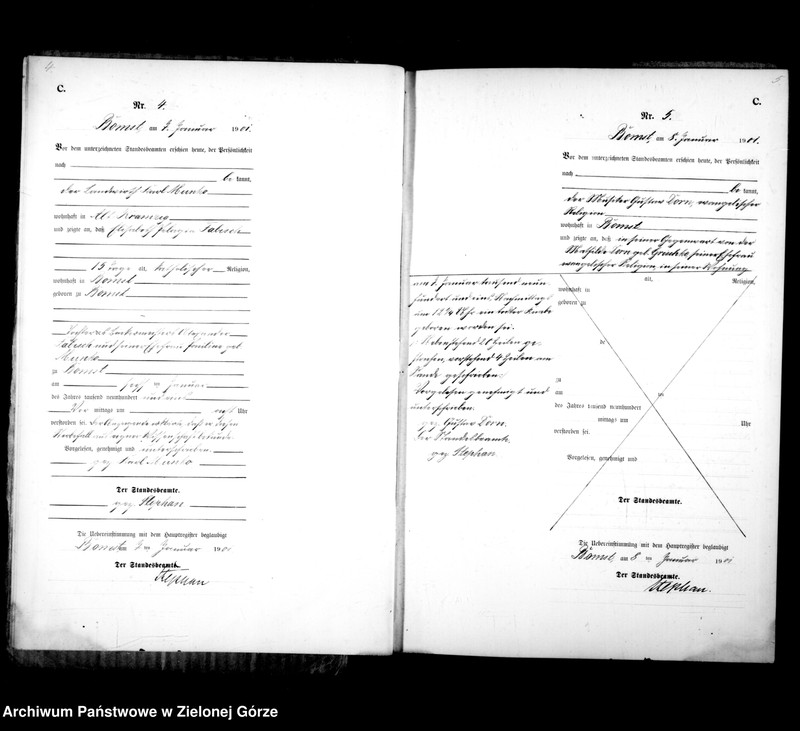 4.
C.
Nr. 4.
Bomst, am 7. Januar 1901.
Vor dem unterzeichneten Standesbeamten erschien heute, der Persönlichkeit
nach
be kannt,
der Landwirth Karl Munko
wohnhaft in Alt Kramzig
und zeigte an, daß Elisabeth
15 Tage alt, katholischer Religion,
wohnhaft in Bomst
geboren zu Bomst
Tochter des
und seiner Ehefrau Pauline geb.
Munko
zu Bomst
am Januar
des Jahres tausend neunhundert und eins
Vor mittags um Uhr
verstorben sei. Der Anzeigende erklärte, daß er diesen
Sterbefall aus eigener Wissenschaft bekunde.
Vorgelesen, genehmigt und unterschrieben.
gez. Karl Munko
Der Standesbeamte.
gez. Stephan
Die Uebereinstimmung mit dem Hauptregister beglaubigt
Bomst, am 7 ten Januar 1901
Der Standesbeamte.
Stephan
5
C.
Nr. 5.
Bomst, am 8. Januar 1901.
Vor dem unterzeichneten Standesbeamten erschien heute, der Persönlichkeit
nach
be kannt,
der Gustav Dorn, evangelischer
Religion
wohnhaft in Bomst
und zeigte an, daß in seiner Gegenwart von der
Mathilde Dorn geb. seiner Ehefrau
evangelischer Religion, in seiner Wohnung
alt, Religion,
wohnhaft in
geboren zu
de
zu
am ten
des Jahres tausend neunhundert
mittags um Uhr
verstorben sei.
Vorgelesen, genehmigt und
am Januar tausend neun
hundert und eins Nachmittags
um 12 3/4 Uhr ein todter Knabe
geboren worden sei.
Nebenstehend 21 Zeilen ge
strichen, vorstehend 4 Zeilen am
Rande geschrieben.
Vorgelesen genehmigt und
unterschrieben.
gez. Gustav Dorn.
Der Standesbeamte.
gez. Stephan.
Der Standesbeamte.
Die Uebereinstimmung mit dem Hauptregister beglaubigt
Bomst, am 8 ten Januar 1901
Der Standesbeamte.
Stephan.
Archiwum Państwowe w Zielonej Górze